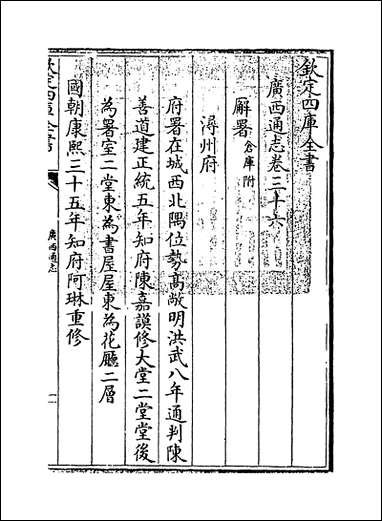 欽定四庫全書
廣西通志卷三十六
廨署倉庫附
潯州府
府署在城西北隅位勢高敞明洪武八年通判陳
善道建正統五年知府陳嘉謨修大堂二堂堂後
為署室二堂東為書屋屋東為花廳二層
國朝康熙三十五年知府阿琳重修
欽定四庫全書
廣西通志